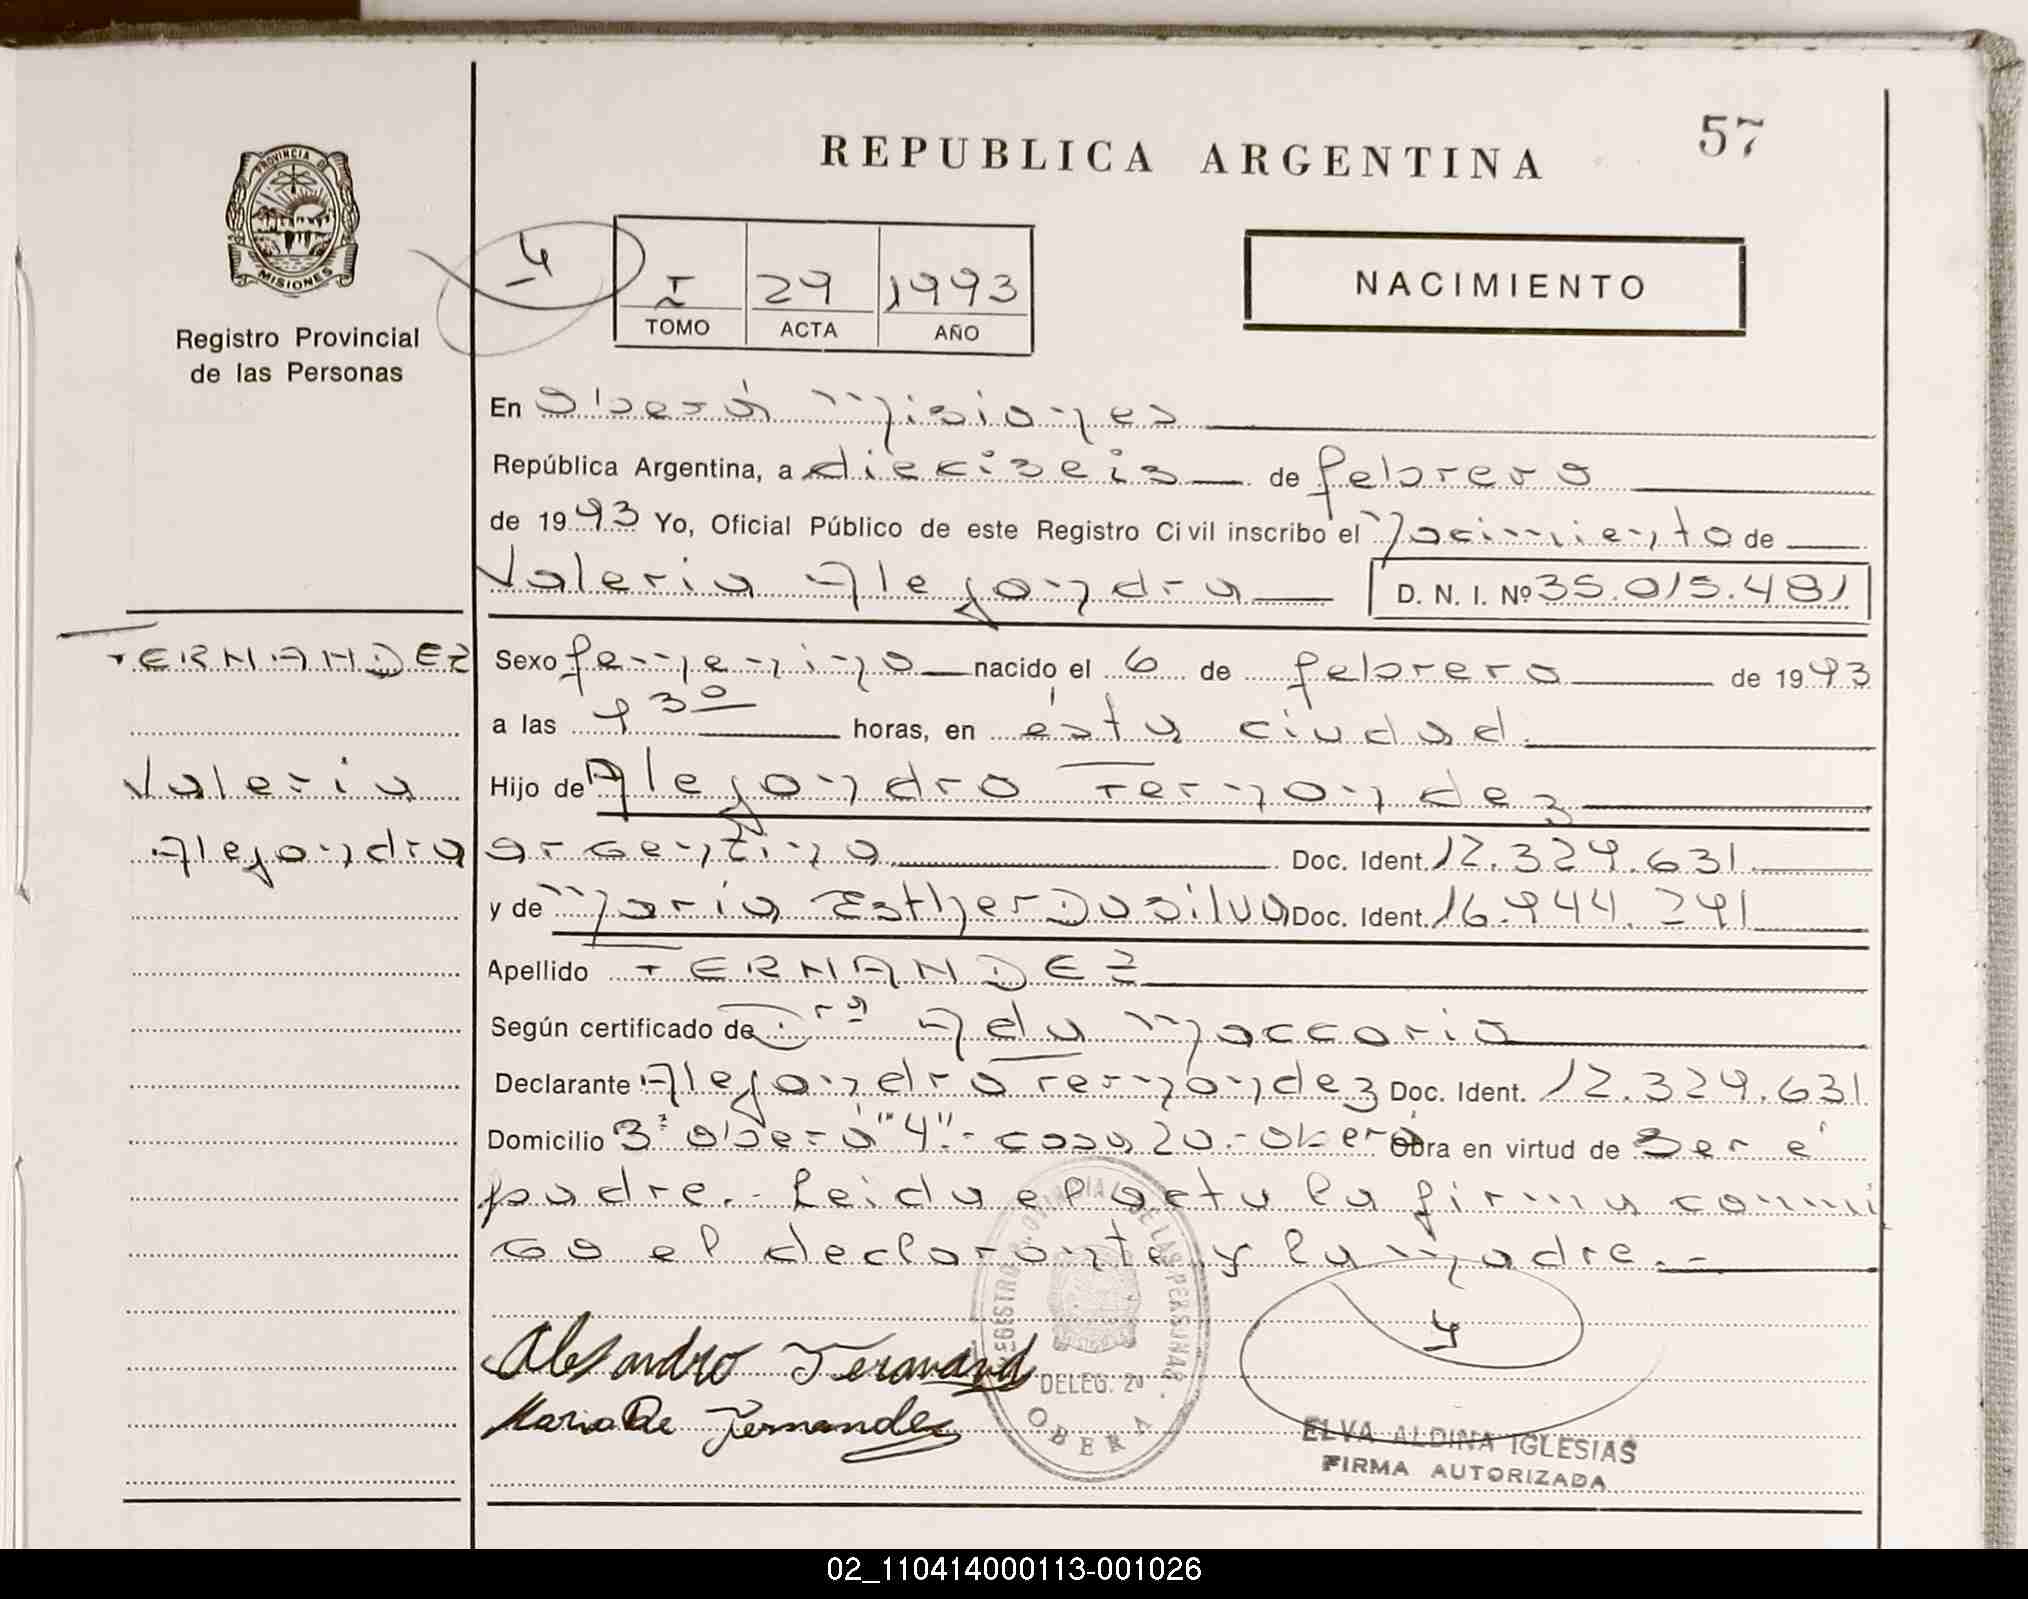 57
REPUBLICA ARGENTINA
PROVINCIA D
MISIONES
Registro Provincial
de las Personas
4
I 29 1993
TOMO ACTA AÑO
NACIMIENTO
En Oberá Misiones
República Argentina, a dieciseis de febrero
de 1993 Yo, Oficial Público de este Registro Civil inscribo el Nacimiento de
Valeria Alejandra D. N. I. Nº 35.015.481
FERNANDEZ
Sexo femenino nacido el 6 de febrero de 1993
a las 9 30 horas, en ésta ciudad.
Valeria
Hijo de Alejandro Fernandez
Alejandra
argentino Doc. Ident. 12.329.631.
y de Maria Esther Dasilva Doc. Ident. 16.944.291
Apellido FERNANDEZ
Según certificado de Dra Ada Maccario
Declarante Alejandro Fernandez Doc. Ident. 12.329.631
Domicilio Oberá "4".- casa 20.- Oberá Obra en virtud de ser el
padre.- Leida el acta la firma conmi
go el declarante y la madre.-
REGISTRO PROVINCIAL DE LAS PERSONAS
DELEG. 2ª
OBERA
4
Alejandro Fernand
Maria De Fernandez
ELVA ALDINA IGLESIAS
FIRMA AUTORIZADA
02_110414000113-001026